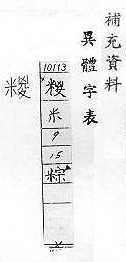 補充資料
異體字表
10113
糉
米
9
15
粽